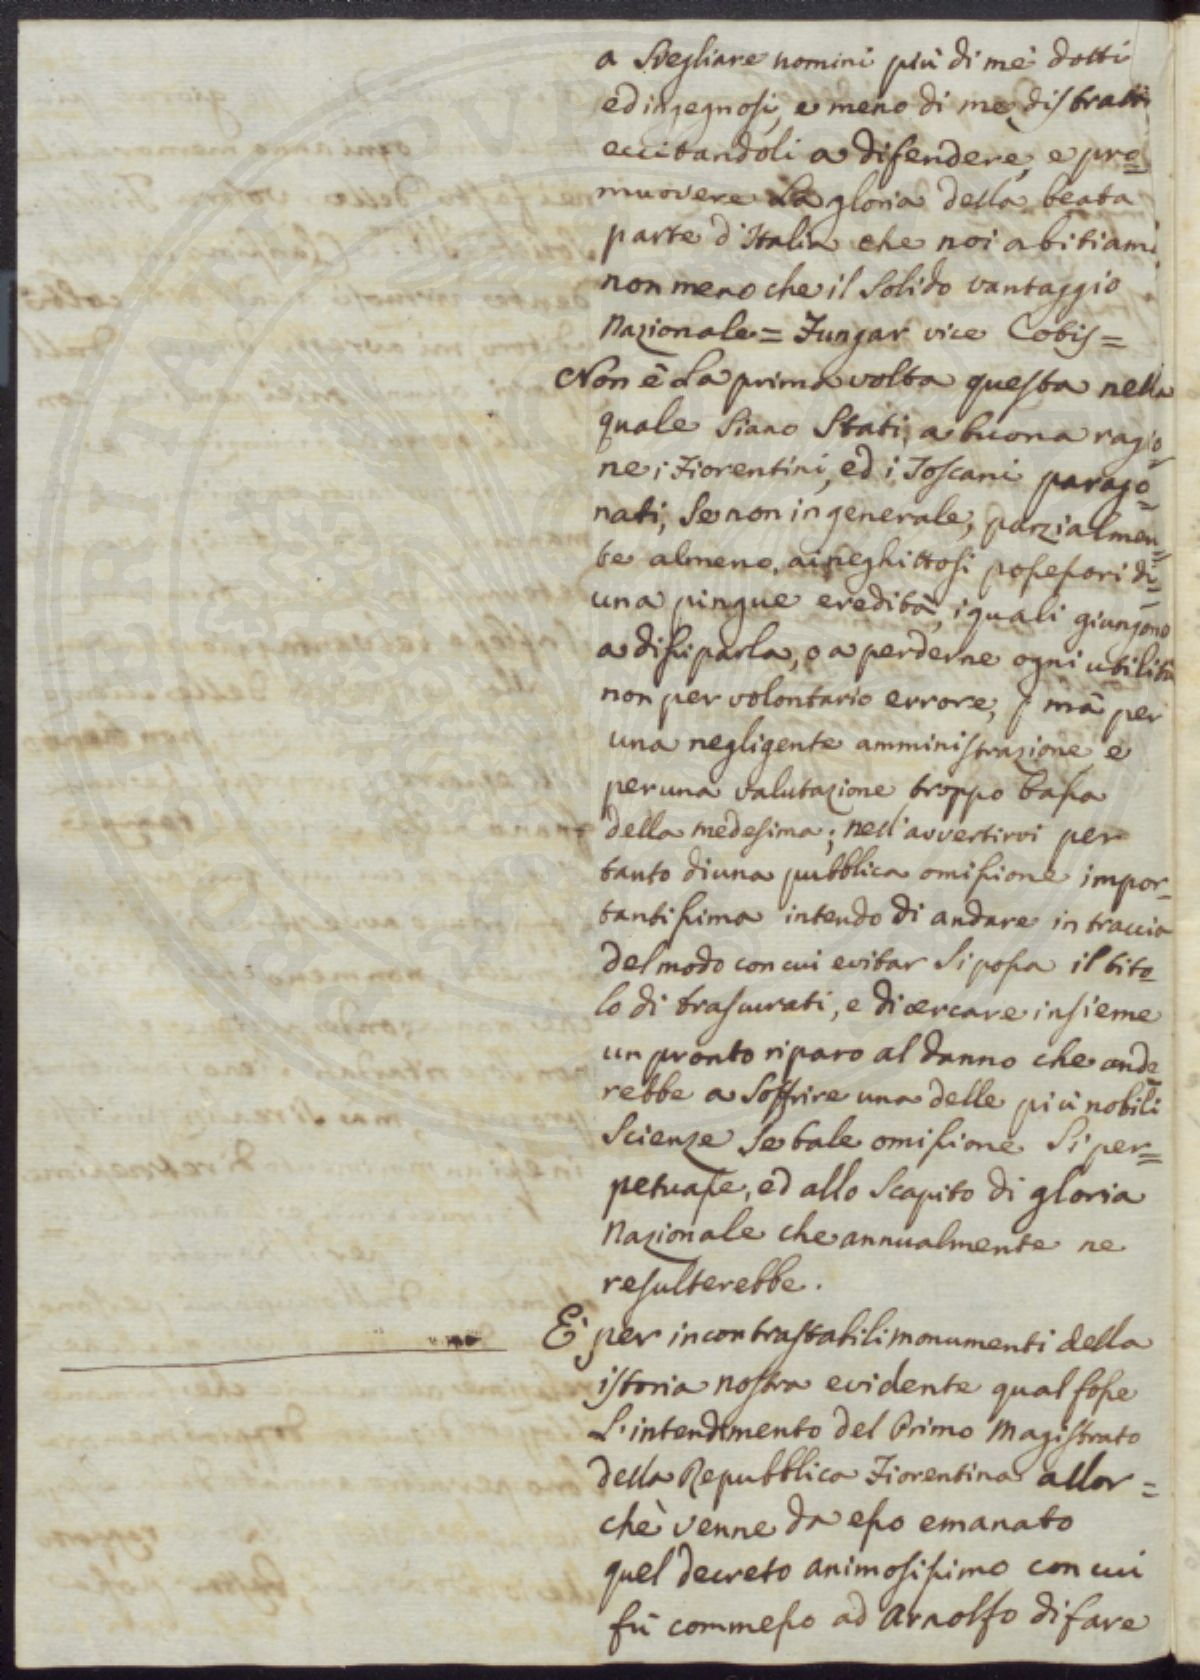 a Svegliare uomini più di mè dotti
ed ingegnosi, e meno di me distratti
eccitandoli a difendere, e pro=
muovere La gloria della beata
parte d'Italia che noi abitiamo
non meno che il Solido vantaggio
Nazionale = Fungar vice Cotis =
Non è La prima volta questa nella
quale Siano Stati, a buona ragio=
ne i Fiorentini, ed i Toscani parago=
nati, Se non in generale, parzialmen=
te almeno, ai neghittosi possessori di=
una pingue eredità, i quali giungono
a dissiparla, o a perderne ogni utilità
non per volontario errore, mà per
una negligente amministrazione e
per una valutazione troppo bassa
della medesima; nell'avvertirvi per
tanto di una pubblica omissione impor=
tantissima intendo di andare in traccia
del modo con cui evitar Si possa il tito=
lo di trascurati, e di cercare insieme
un pronto riparo al danno che ande
rebbe a Soffrire una delle più nobili
Scienze Se tale omissione Si per=
petuasse, ed allo Scapito di gloria
Nazionale che annualmente ne
resulterebbe.
E' per incontrastabili monumenti della
istoria nostra evidente qual fosse
L'intendimento del Primo Magistrato
della Repubblica Fiorentina allor=
chè venne da esso emanato
quel decreto animosissimo con cui
fù commesso ad Arnolfo di fare